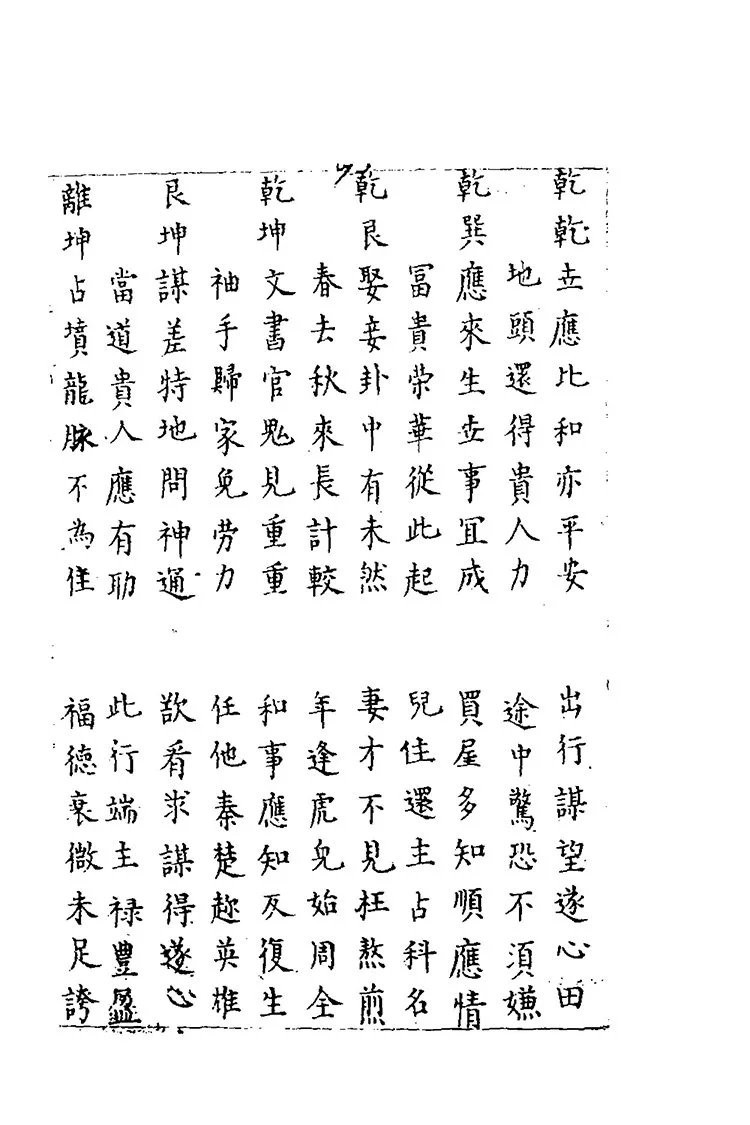 乾乾世應比和亦平安 出行謀望遂心田
地頭還得貴人力 途中驚恐不須嫌
乾巽應來生世事宜成 買屋多知順應情
冨貴荣華從此起 兒住還主占科名
乾艮娶妾卦中有未然 妻才不見枉熬煎
春去秋來長計較 年逢虎兒始周全
乾坤文書官鬼見重重 和事應知反復生
袖手歸家免劳力 任他秦楚趂英雄
艮坤謀差特地問神通 欲看求謀得遂心
當道貴人應有助 此行端主禄豐盈
離坤占墳龍脉不為佳 福德衰微未足誇